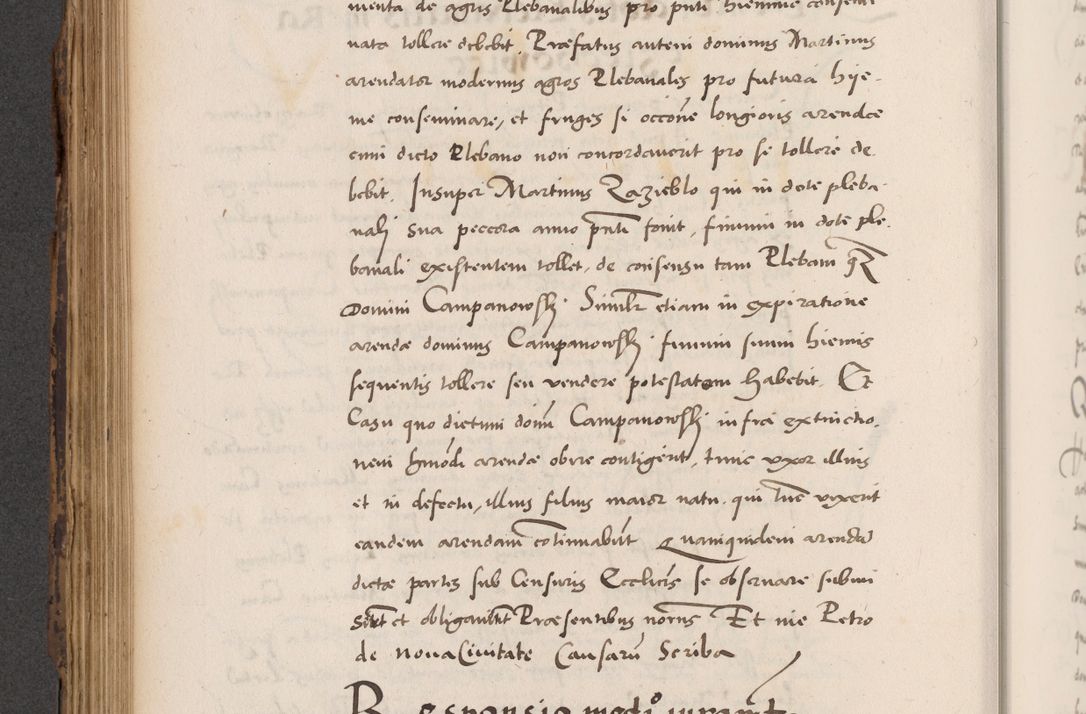 menta de agris Plebanalibus pro pnti hiemme consemi
nata tollere debebit. Præfatus autem dominus Martinus
arendator modernus agros Plebanales pro futura hye-
me conseminare, et fruges si occōne longioris arendæ
cum dicto Plebano non concordaverit pro se tollere de-
bebit. Insuper Martinus Zazieblo qui in dote pleba-
nali sua peccora anno pnti fouit, fimum in dote ple-
banali existentem tollet, de consensu tam Plebani qz
Domini Campanowski. Similr etiam in expiratione
arendæ dominus Campanowski fimum suum hiemis
sequentis tollere seu vendere potestatem habebit. Et
Casu quo dictum donm Campanowski infra extinctio-
nem hmodi arendæ obire contigerit, tunc vxor illius
et in defectu, illius filius maior natu, qui tūc vixerit
eandem arendam cotinuabūt Quamquidem arendā
dictæ partes sub Censuris Ecclicis se obseruare submi
serūt et obligauerūt Præsentibus norns Et me Petro
de noua Ciuitate Causarū Scriba
Responsio modo